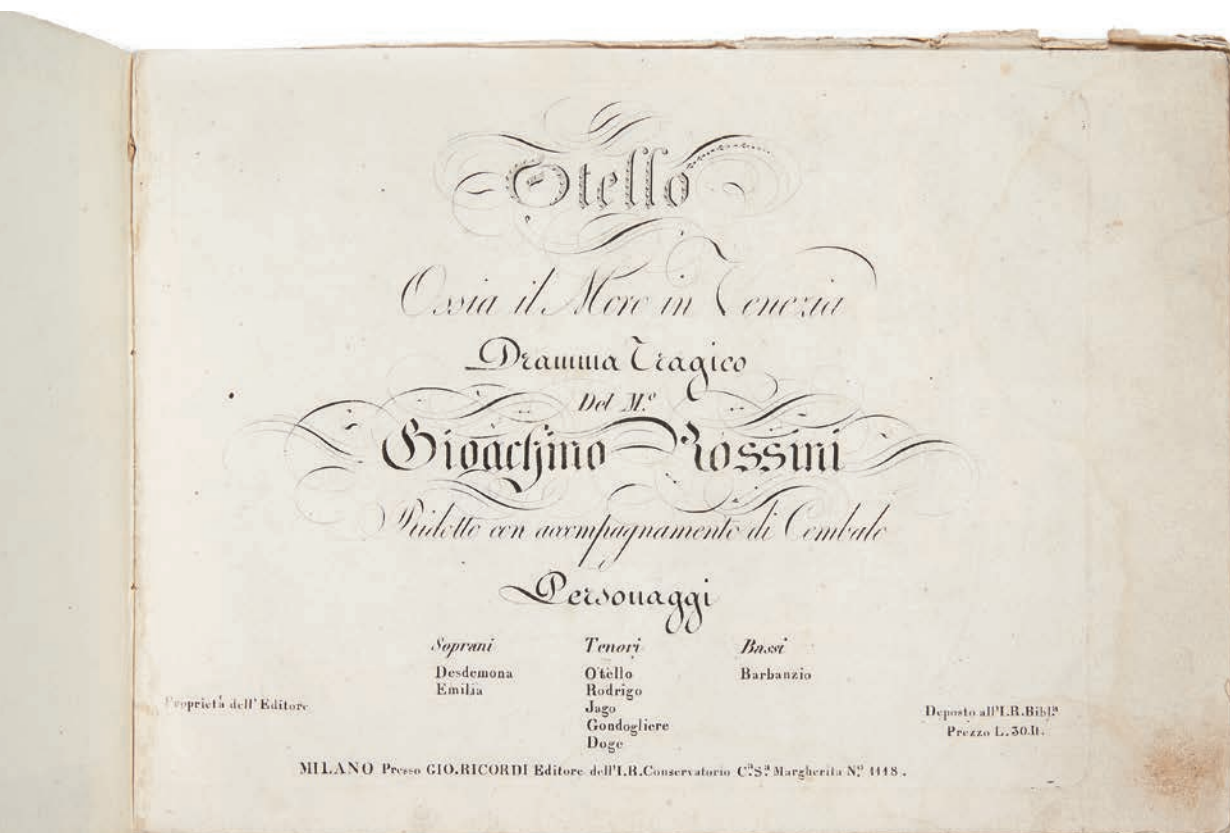 Otello
Ossia il Moro in Venezia
Dramma Tragico
Del M.º
Gioachino Rossini
Ridotto con accompagnamento di Cembalo
Personaggi
Soprani Tenori Bassi
Desdemona Otello Barbanzio
Emilia Rodrigo
Jago
Gondogliere
Doge
Proprietà dell' Editore
Deposto all'I.R.Bibl.ª
Prezzo L.30.It.
MILANO Presso GIO.RICORDI Editore dell'I.R.Conservatorio C.ª S.ª Margherita N.º 1118.